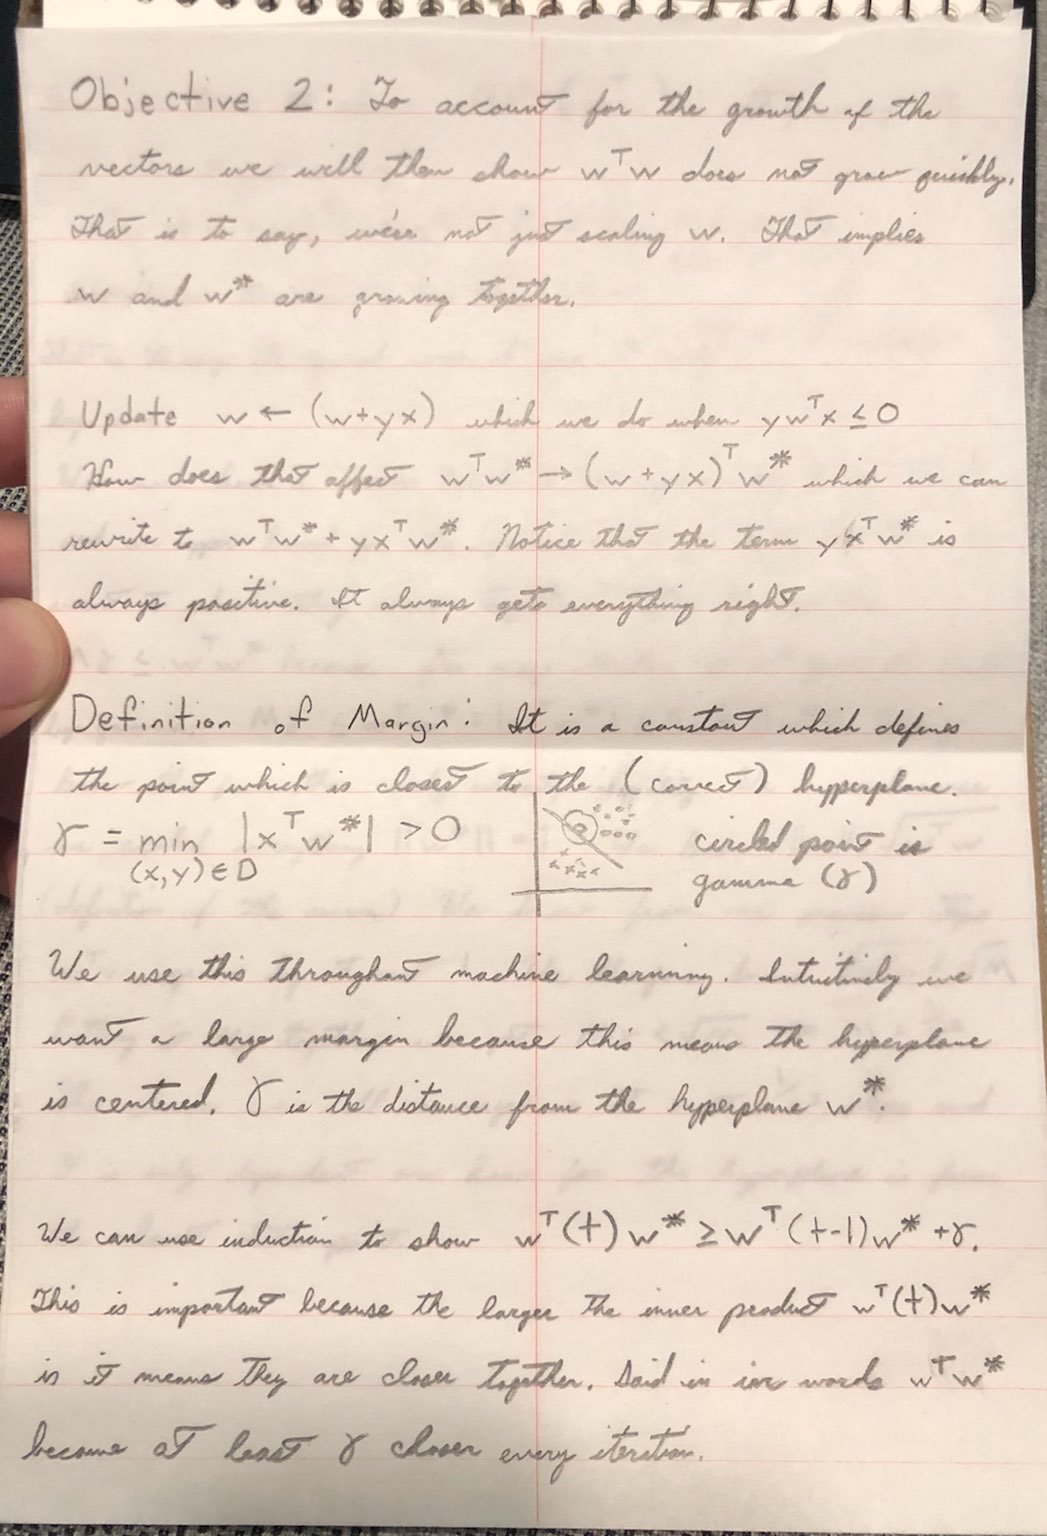 Objective 2: To account for the growth of the
vectors we will then show wᵀw does not grow quickly.
That is to say, we're not just scaling w. That implies
w and w* are growing together.
Update w ← (w+yx) which we do when ywᵀx ≤ 0
How does that affect wᵀw* → (w+yx)ᵀw* which we can
rewrite to wᵀw* + yxᵀw*. Notice that the term yxᵀw* is
always positive. It always gets everything right.
Definition of Margin: It is a constant which defines
the point which is closest to the (correct) hyperplane.
γ = min |xᵀw*| > 0
(x,y)∈D
circled point is
gamma (γ)
We use this throughout machine learning. Intuitively we
want a large margin because this means the hyperplane
is centered. γ is the distance from the hyperplane w*.
We can use induction to show wᵀ(t)w* ≥ wᵀ(t-1)w* + γ.
This is important because the larger the inner product wᵀ(t)w*
is it means they are closer together. Said in words wᵀw*
become at least γ closer every itertion.